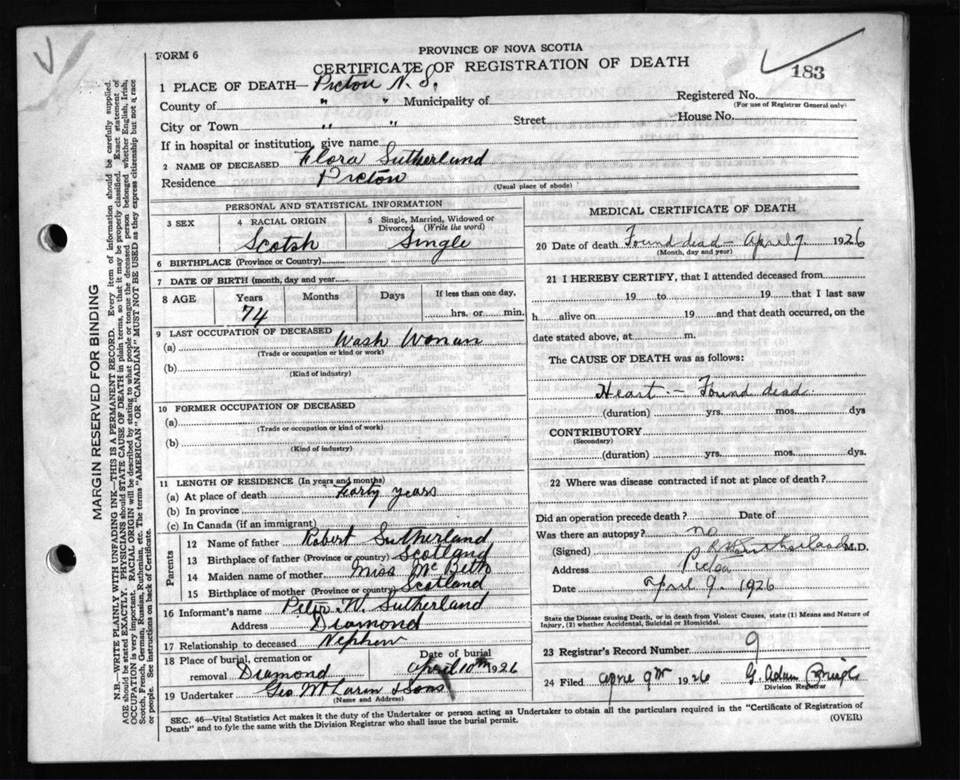 FORM 6
PROVINCE OF NOVA SCOTIA
CERTIFICATE OF REGISTRATION OF DEATH
183
1 PLACE OF DEATH— Pictou N. S.
Registered No.
(For use of Registrar General only)
County of " " Municipality of
City or Town " " Street House No.
If in hospital or institution, give name
2 NAME OF DECEASED Flora Sutherland
Residence Pictou
(Usual place of abode)
PERSONAL AND STATISTICAL INFORMATION
3 SEX
4 RACIAL ORIGIN
Scotsh
5 Single, Married, Widowed or Divorced (Write the word)
Single
6 BIRTHPLACE (Province or Country)
7 DATE OF BIRTH (month, day and year)
8 AGE Years Months Days If less than one day,
74 hrs. or min.
9 LAST OCCUPATION OF DECEASED
(a) Wash Woman
(Trade or occupation or kind or work)
(b)
(Kind of industry)
10 FORMER OCCUPATION OF DECEASED
(a)
(Trade or occupation or kind of work)
(b)
(Kind of industry)
11 LENGTH OF RESIDENCE (In years and months)
(a) At place of death Forty years
(b) In province
(c) In Canada (if an immigrant)
Parents
12 Name of father Robert Sutherland
13 Birthplace of father (Province or country) Scotland
14 Maiden name of mother Miss McBeth
15 Birthplace of mother (Province or country) Scotland
16 Informant's name Peter W. Sutherland
Address Diamond
17 Relationship to deceased Nephew
18 Place of burial, cremation or removal Diamond
Date of burial
April 10th 1926
19 Undertaker Geo. McLaren & Sons
(Name and Address)
MEDICAL CERTIFICATE OF DEATH
20 Date of death Found dead - April 9. 1926
(Month, day and year)
21 I HEREBY CERTIFY, that I attended deceased from
19 to 19 that I last saw
h alive on 19 and that death occurred, on the
date stated above, at m.
The CAUSE OF DEATH was as follows:
Heart :- Found dead
(duration) yrs. mos. dys
CONTRIBUTORY
(Secondary)
(duration) yrs. mos. dys.
22 Where was disease contracted if not at place of death?
Did an operation precede death? Date of
Was there an autopsy? no
(Signed) Sutherland M.D.
Address Pictou
Date April 9. 1926
State the Disease causing Death, or in death from Violent Causes, state (1) Means and Nature of Injury, (2) whether Accidental, Suicidal or Homicidal.
23 Registrar's Record Number 9
24 Filed April 9th 1926 G. Adam
Division Registrar
SEC. 46—Vital Statistics Act makes it the duty of the Undertaker or person acting as Undertaker to obtain all the particulars required in the "Certificate of Registration of
Death" and to fyle the same with the Division Registrar who shall issue the burial permit.
(OVER)
MARGIN RESERVED FOR BINDING
NB.—WRITE PLAINLY WITH UNFADING INK—THIS IS A PERMANENT RECORD. Every item of information should be carefully supplied.
AGE should be stated EXACTLY. PHYSICIANS should STATE CAUSE OF DEATH in plain terms, so that it may be properly classified. Exact statement of
OCCUPATION is very important. RACIAL ORIGIN will be described by stating to what people or tongue the deceased person belonged whether English, Irish,
Scotch, French, German, Russian, Ruthenian, etc. The terms "AMERICAN" or "CANADIAN" MUST NOT BE USED as they express citizenship but not a race
or people. See instructions on back of Certificate.